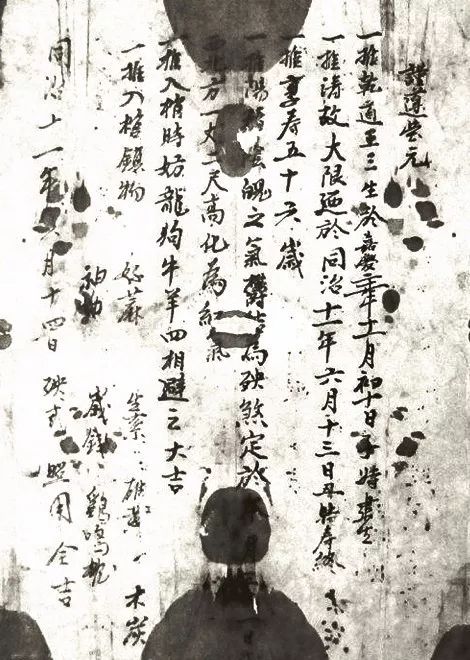 謹遵紫元
一推乾造王三生於嘉慶年十一月初十日子時生
一推故大限於同治十一年六月十三日丑時壽終
一推享壽五十六歲
一推陽陰魄之氣為殃煞定於月日
方一丈二尺高化為紅氣
一推入梢時妨龍狗牛羊四相避之大吉
一推入棺鎮物 好蔴 生 雄黃 木炭
神麯 歲錢 鷄鳴枕
同治十一年六月十四日 殃式照用全吉